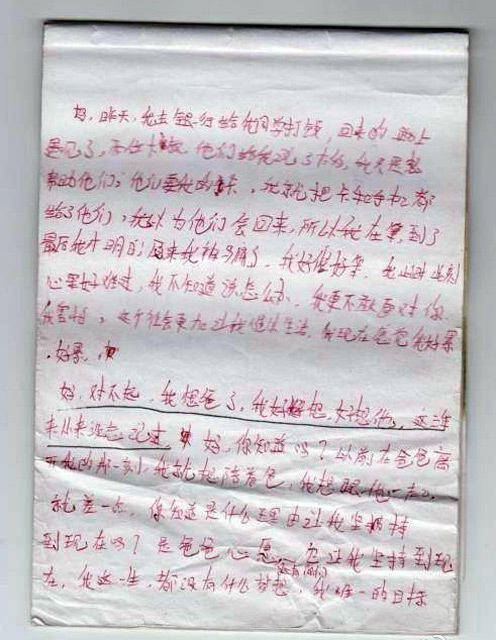 妈，昨天，我去银行给我同学打钱，回来的路上
遇见了，他们给我说了，我只是想
帮助他们，他们要我的卡，我就把卡和手机都
给了他们，我以为他们会回来，所以我在等，到了
最后我才明白，原来我被骗了，我好傻好笨，我此时此刻
心里好难过，我不知道该怎么办，我更不敢面对你
我害怕，这个社会更加让我，我现在爸爸我好累
，好累，
妈，对不起，我想爸了，我好好想，好想他，这三年
来从来没忘记过 妈，你知道吗？以前在爸爸离
开我的那一刻，我就想陪着爸，我想跟他一起，
就差一点，你知道是什么理由让我坚持
到现在吗？是爸爸心愿，让我坚持到现
在，我这一生，都没有什么梦想，我唯一的目标